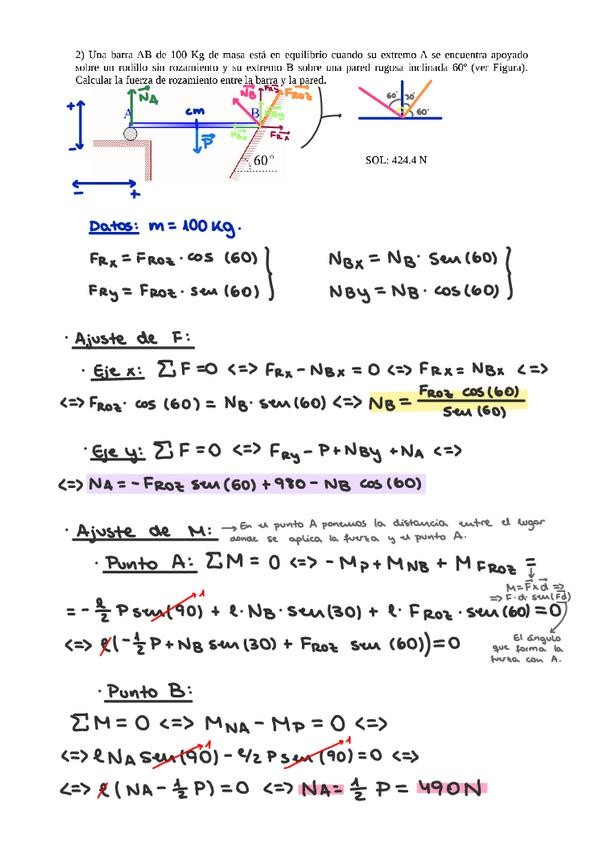 2) Una barra AB de 100 Kg de masa está en equilibrio cuando su extremo A se encuentra apoyado
sobre un rodillo sin rozamiento y su extremo B sobre una pared rugosa inclinada 60º (ver Figura).
Calcular la fuerza de rozamiento entre la barra y la pared.
NA
cm
NB
FRy
FROZ
A
B
NBy
NBx
FRx
P
60°
+
-
-
+
60°
30°
60°
SOL: 424.4 N
Datos: m = 100 Kg.
FRx = FROZ · cos (60)
NBx = NB · sen (60)
FRy = FROZ · sen (60)
NBy = NB · cos (60)
· Ajuste de F:
· Eje x: ΣF = 0 <=> FRx - NBx = 0 <=> FRx = NBx <=>
<=> FROZ · cos (60) = NB · sen (60) <=> NB = FROZ cos (60) / sen (60)
· Eje y: ΣF = 0 <=> FRy - P + NBy + NA <=>
<=> NA = - FROZ sen (60) + 980 - NB cos (60)
· Ajuste de M: → En el punto A ponemos la distancia entre el lugar
donde se aplica la fuerza y el punto A.
· Punto A: ΣM = 0 <=> - MP + MNB + M FROZ =
M = F x d =>
=> F · d · sen (Fd)
= - l/2 P sen (90) 1 + l · NB · sen (30) + l · FROZ · sen (60) = 0
<=> l (- 1/2 P + NB sen (30) + FROZ sen (60)) = 0
El ángulo
que forma la
fuerza con A.
· Punto B:
ΣM = 0 <=> MNA - MP = 0 <=>
<=> l NA sen (90) 1 - l/2 P sen (90) 1 = 0 <=>
<=> l (NA - 1/2 P) = 0 <=> NA = 1/2 P = 490 N